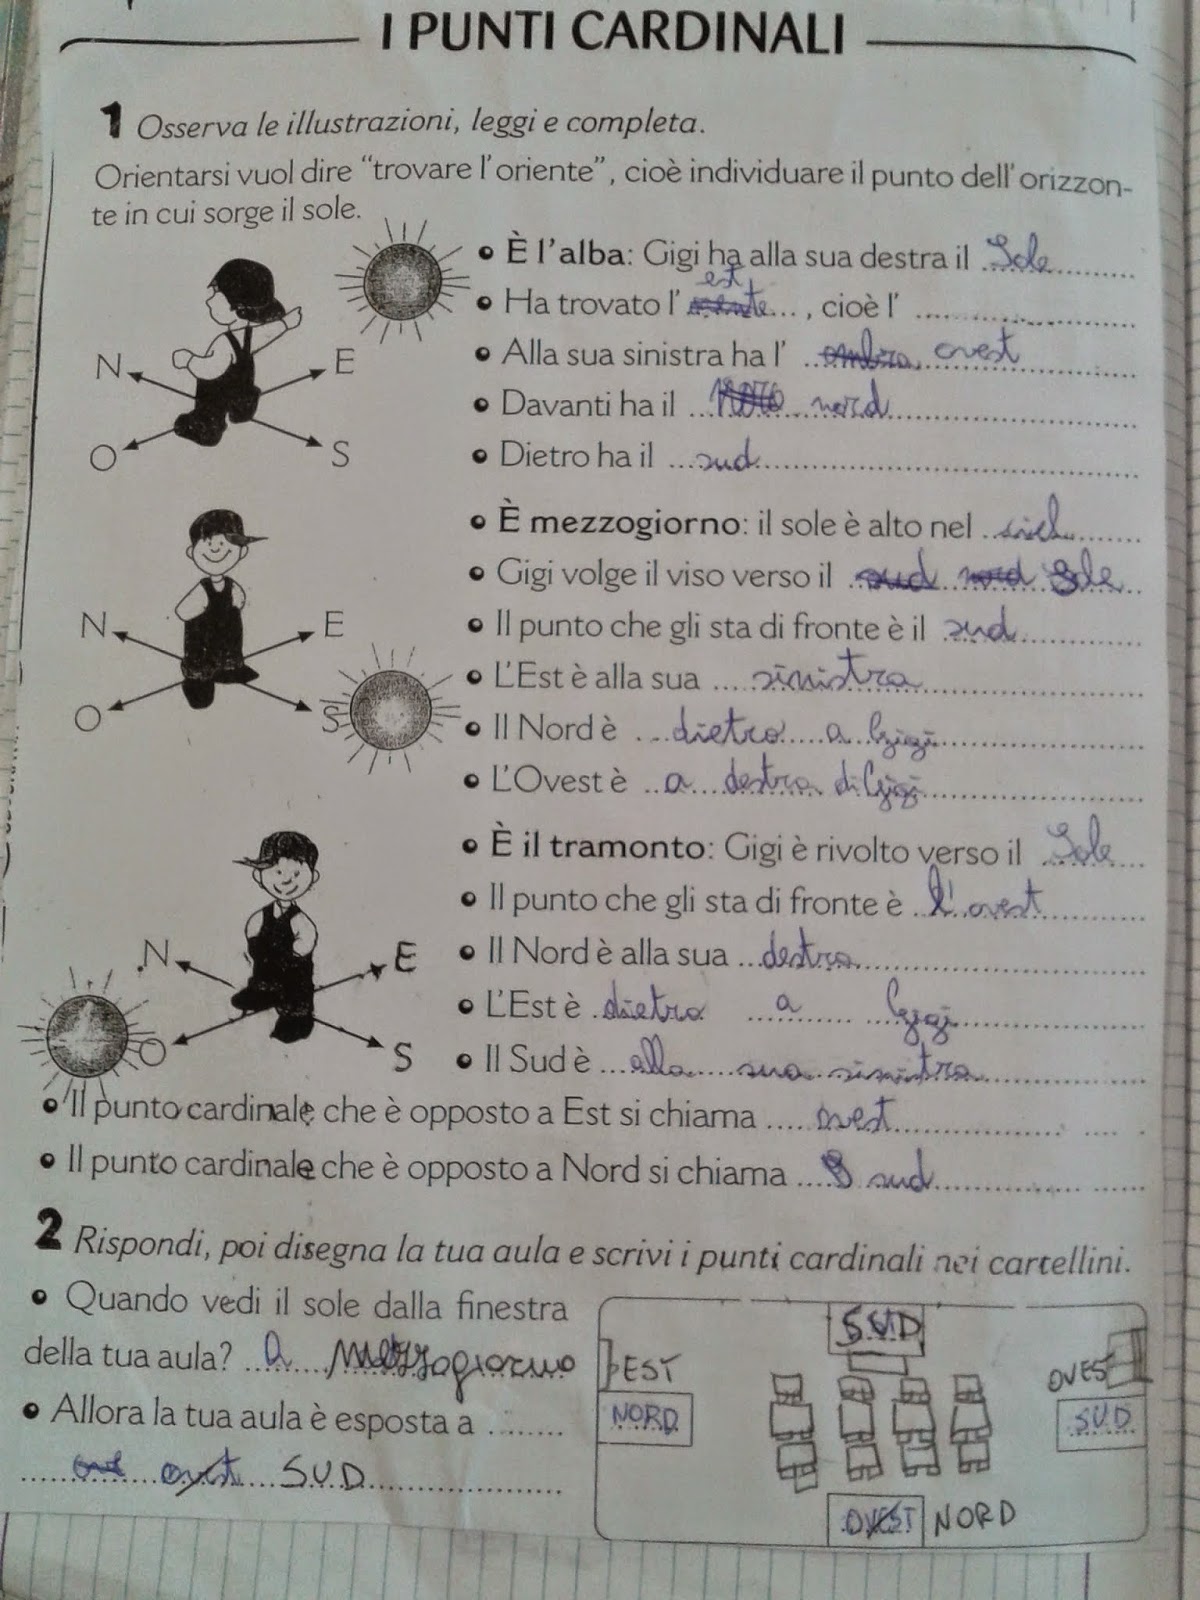 I PUNTI CARDINALI
1 Osserva le illustrazioni, leggi e completa.
Orientarsi vuol dire “trovare l'oriente”, cioè individuare il punto dell'orizzon-
te in cui sorge il sole.
• È l'alba: Gigi ha alla sua destra il Sole
est
• Ha trovato l' ..., cioè l' ...
• Alla sua sinistra ha l' ombra ovest
• Davanti ha il nord
• Dietro ha il sud
N E
O S
• È mezzogiorno: il sole è alto nel
• Gigi volge il viso verso il sud nord Sole
• Il punto che gli sta di fronte è il sud
• L'Est è alla sua sinistra
• Il Nord è dietro a Gigi
• L'Ovest è a destra di Gigi
N E
O S
• È il tramonto: Gigi è rivolto verso il Sole
• Il punto che gli sta di fronte è l'ovest
• Il Nord è alla sua destra
• L'Est è dietro a Gigi
• Il Sud è alla sua sinistra
N E
O S
• Il punto cardinale che è opposto a Est si chiama ovest
• Il punto cardinale che è opposto a Nord si chiama S sud
2 Rispondi, poi disegna la tua aula e scrivi i punti cardinali nei cartellini.
• Quando vedi il sole dalla finestra
della tua aula? A mezzogiorno
• Allora la tua aula è esposta a
ovest SUD
SUD
EST OVEST
NORD SUD
OVEST NORD